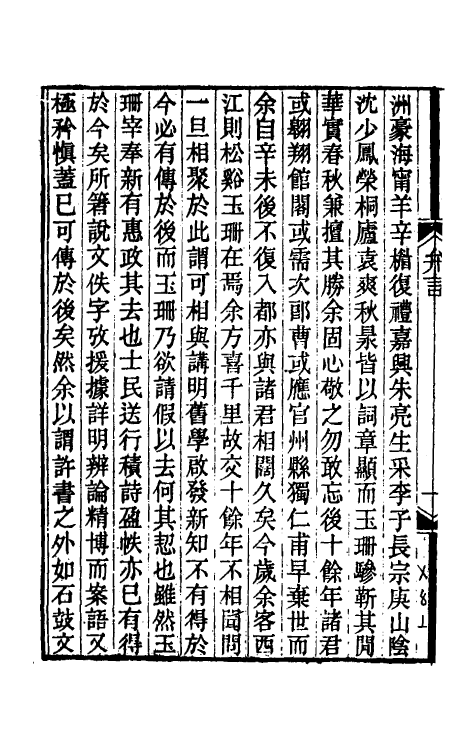 洲豪海甯羊辛楣復禮嘉興朱亮生采李子長宗庚山陰
沈少鳳榮桐廬袁爽秋昶皆以詞章顯而玉珊驂靳其閒
華實春秋兼擅其勝余固心敬之勿敢忘後十餘年諸君
或翺翔館閣或需次郎曹或應官州縣獨仁甫早棄世而
余自辛未後不復入都亦與諸君相闊久矣今歲余客西
江則松谿玉珊在焉余方喜千里故交十餘年不相聞問
一旦相聚於此謂可相與講明舊學啟發新知不有得於
今必有傳於後而玉珊乃欲請假以去何其恝也雖然玉
珊宰奉新有惠政其去也士民送行積詩盈帙亦已有得
於今矣所箸說文佚字攷援據詳明辨論精博而案語又
極矜慎蓋已可傳於後矣然余以謂許書之外如石鼓文
弁言
一